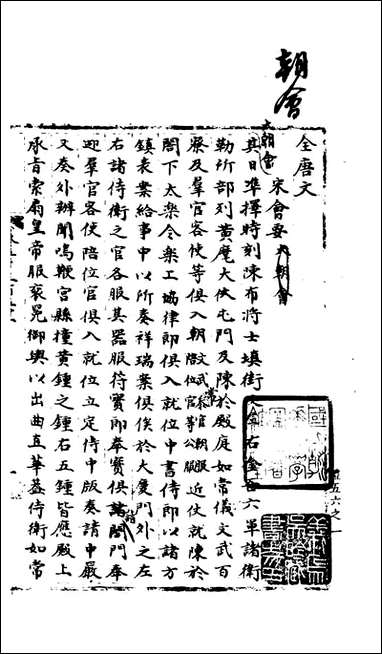 朝會
大朝會
全唐文
宋會要 大朝會
其日準擇時刻陳布將士填街 金吾 六軍諸衛
勒所部列黃麾大仗屯門及陳於殿庭如常儀文武百
寮及羣官客使等俱入朝 文武常官朝服陪位官公服 近仗就陳於
閤下太樂令樂工協律郎俱入就位中書侍郎以諸方
鎮表案給事中以所奏祥瑞案俱俟於大慶門外之左
右諸侍衛之官各服其器服符寶郎奉寶俱詣閤門奉
迎羣官客使陪位官俱入就位立定侍中版奏請中嚴
又奏外辦鳴鞭宮縣撞黃鍾之鍾右五鍾皆應殿上
承旨索扇皇帝服衮冕御輿以出曲直華蓋侍衛如常
五六之一